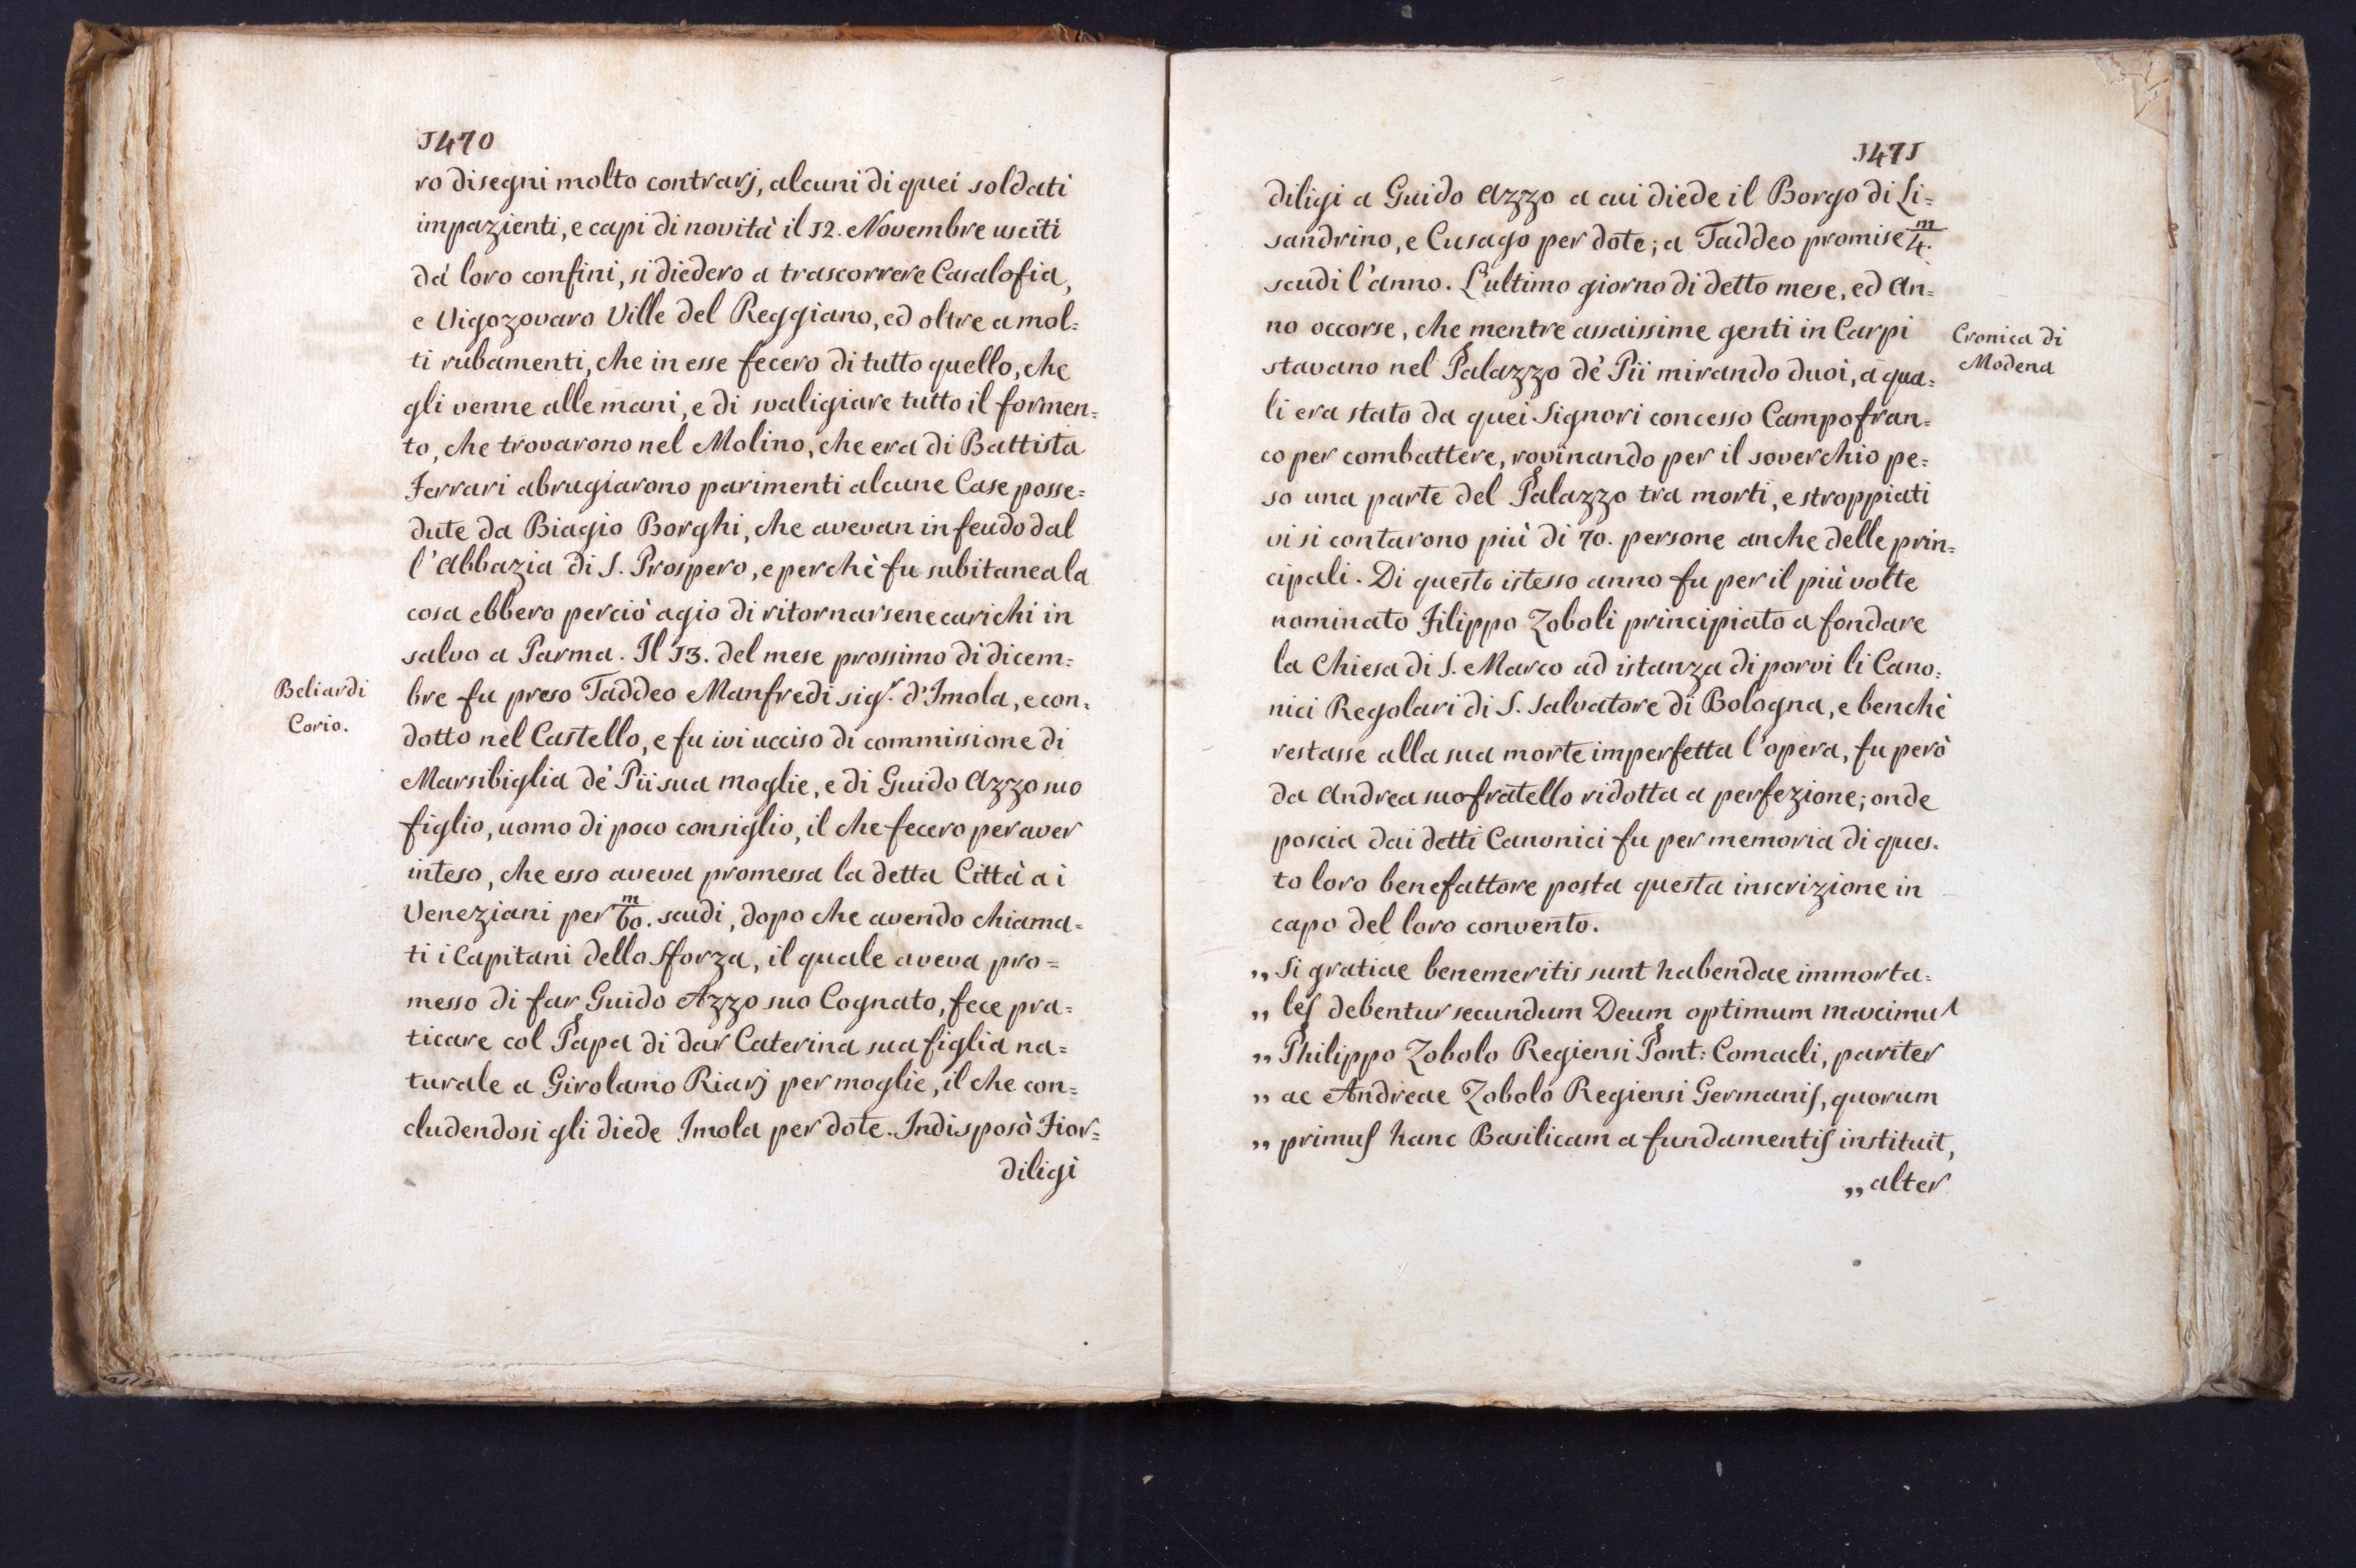 1470
ro disegni molto contrarj, alcuni di quei soldati
impazienti, e capi di novità il 12. Novembre usciti
dà loro confini, si diedero a trascorrere Casalofia,
e Vigozovaro Ville del Reggiano, ed oltre a mol=
ti rubamenti, che in esse fecero di tutto quello, che
gli venne alle mani, e di svaligiare tutto il formen=
to, che trovarono nel Molino, che era di Battista
Ferrari abrugiarono parimenti alcune Case posse=
dute da Biagio Borghi, che avevan in feudo dal
l'Abbazia di S. Prospero, e perchè fu subitanea la
cosa ebbero perciò agio di ritornarsene carichi in
salvo a Parma. Il 13. del mese prossimo di dicem=
Beliardi
Corio.
bre fu preso Taddeo Manfredi sig.r d'Imola, e con=
dotto nel Castello, e fu ivi ucciso di commissione di
Marsibiglia dè Pii sua moglie, e di Guido Azzo suo
figlio, uomo di poco consiglio, il che fecero per aver
inteso, che esso aveva promessa la detta Città a i
Veneziani per m/60. scudi, dopo che avendo chiama=
ti i Capitani dello Sforza, il quale aveva pro=
messo di far Guido Azzo suo Cognato, fece pra=
ticare col Papa di dar Caterina sua figlia na=
turale a Girolamo Riarj per moglie, il che con=
cludendosi gli diede Imola per dote. Indi sposò Fior=
diligi
1471
diligi a Guido Azzo a cui diede il Borgo di Li=
sandrino, e Cusago per dote; a Taddeo promise m/4.
scudi l'anno. L'ultimo giorno di detto mese, ed An=
no occorse, che mentre assaissime genti in Carpi
Cronica di
Modena
stavano nel Palazzo dè Pii mirando duoi, à qua=
li era stato da quei Signori concesso Campofran=
co per combattere, rovinando per il soverchio pe=
so una parte del Palazzo tra morti, e stroppiati
vi si contarono più di 70. persone anche delle prin=
cipali. Di questo istesso anno fu per il più volte
nominato Filippo Zoboli principiato a fondare
la Chiesa di S. Marco ad istanza di porvi li Cano=
nici Regolari di S. Salvatore di Bologna, e benchè
restasse alla sua morte imperfetta l'opera, fu però
da Andrea suo fratello ridotta a perfezione; onde
poscia dai detti Canonici fu per memoria di ques=
to loro benefattore posta questa inscrizione in
capo del loro convento.
„ Si gratiae benemeritis sunt habendae immorta=
„ les debentur secundum Deum optimum maximu
„ Philippo Zobolo Regiensi Pont: Comacli, pariter
„ ac Andreae Zobolo Regiensi Germanis, quorum
„ primus hanc Basilicam a fundamentis instituit,
„ alter